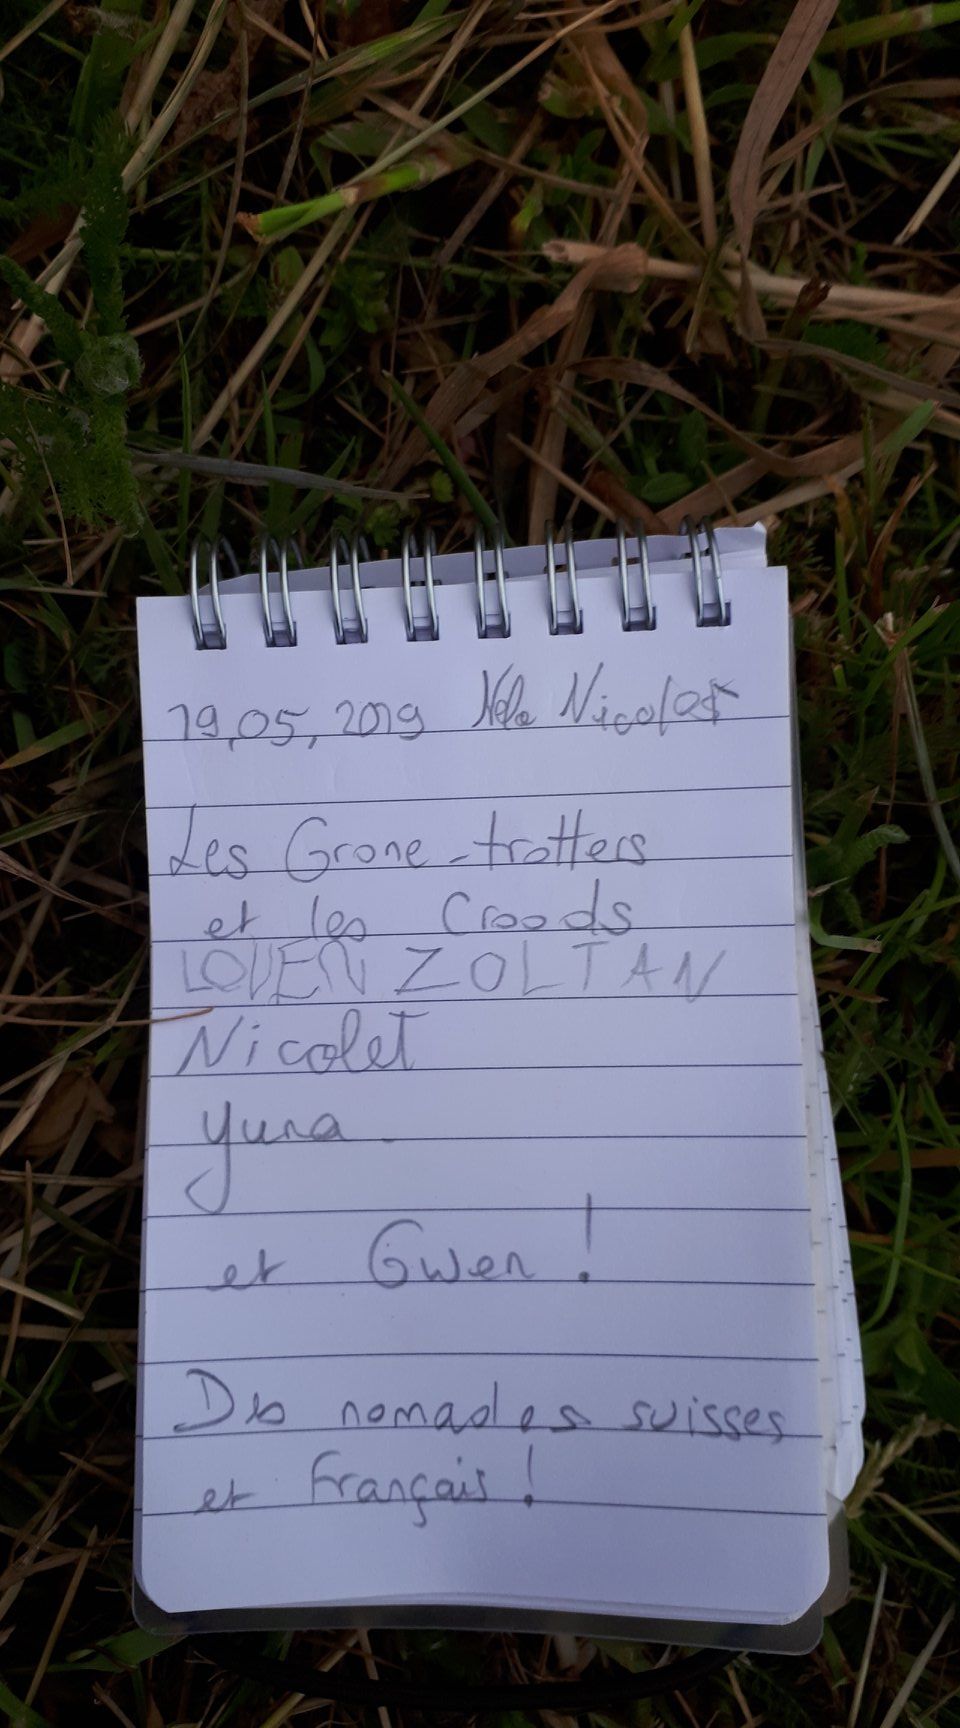 19,05,2019 Nicolas
Les Grone-trotters
et les Croods
LOVEN ZOLTAN
Nicolet
Yuna
et Gwen !
Des nomades suisses
et Français !